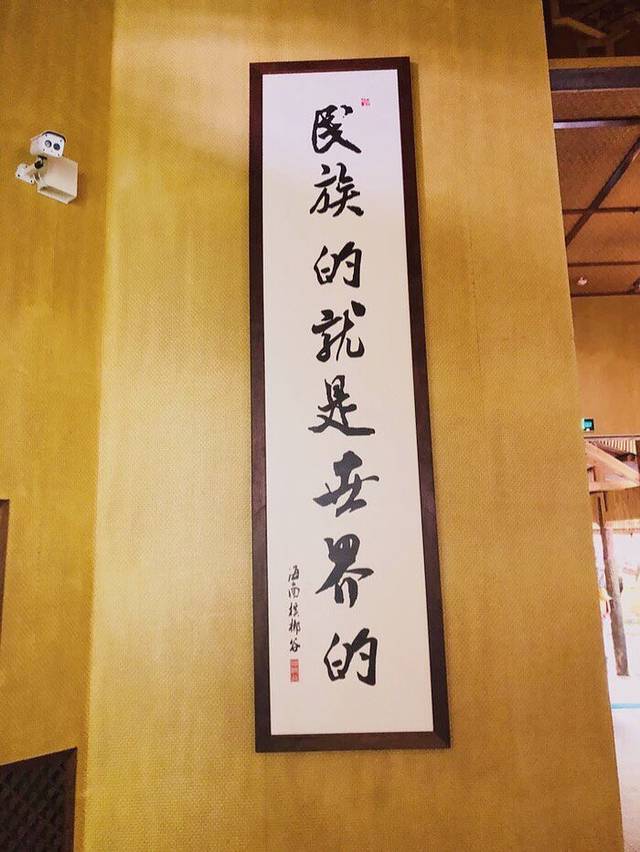 民族的就是世界的
海南槟榔谷